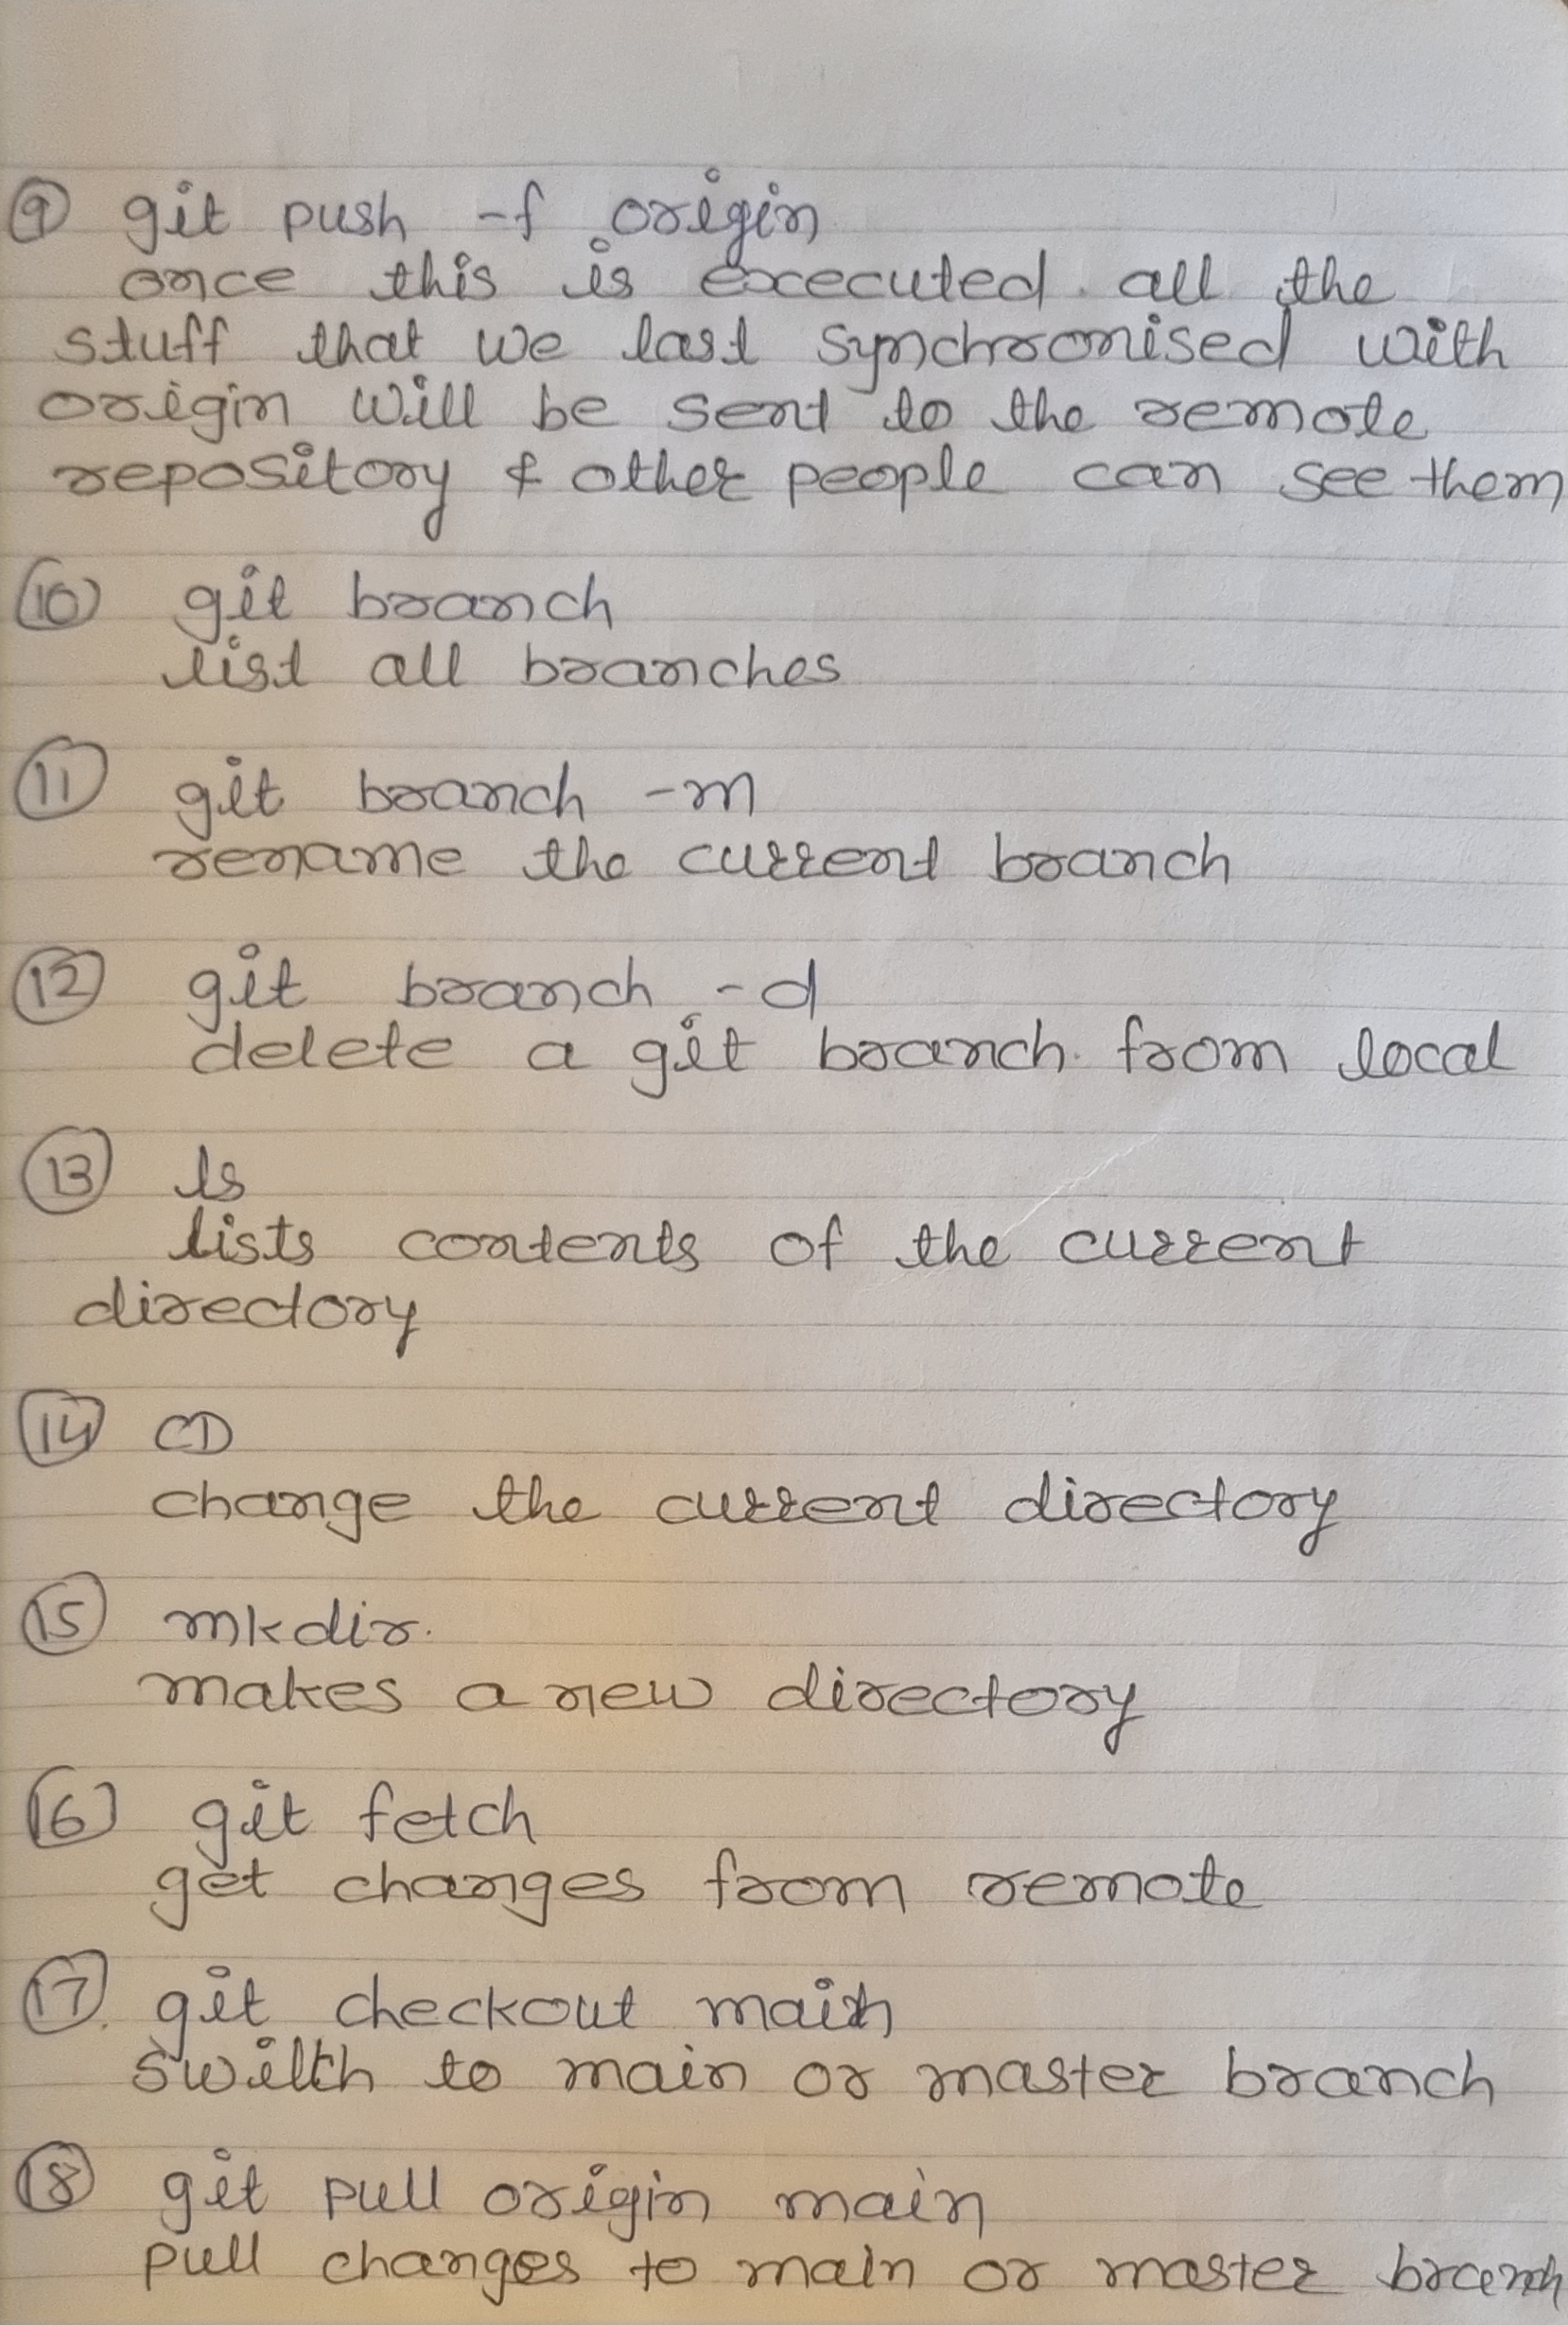 9 git push -f origin
once this is executed all the
stuff that we last synchronised with
origin will be sent to the remote
repository & other people can see them
10 git branch
list all branches
11 git branch -m
rename the current branch
12 git branch -d
delete a git branch from local
13 ls
lists contents of the current
directory
14 CD
change the current directory
15 mkdir.
makes a new directory
16 git fetch
get changes from remote
17. git checkout main
switch to main or master branch
18 git pull origin main
pull changes to main or master branch